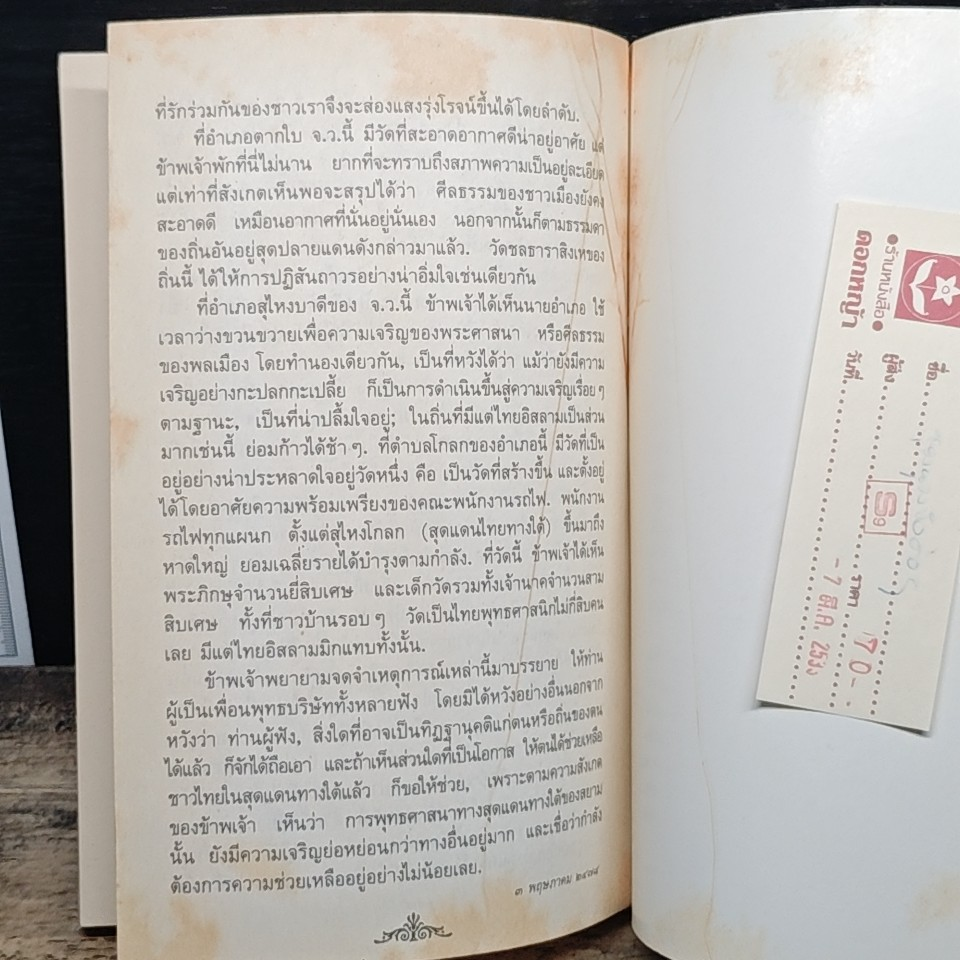 ที่รักร่วมกันของชาวเราจึงจะส่องแสงรุ่งโรจน์ขึ้นได้โดยลำดับ.
ที่อำเภอตากใบ จ.ว.นี้ มีวัดที่สะอาดอากาศดีน่าอยู่อาศัย แต่
ข้าพเจ้าพักที่นี่ไม่นาน ยากที่จะทราบถึงสภาพความเป็นอยู่ละเอียด
แต่เท่าที่สังเกตเห็นพอจะสรุปได้ว่า ศีลธรรมของชาวเมืองยังคง
สะอาดดี เหมือนอากาศที่นั่นอยู่นั่นเอง นอกจากนั้นก็ตามธรรมดา
ของถิ่นอันอยู่สุดปลายแดนดังกล่าวมาแล้ว. วัดชลธาราสิงเหของ
ถิ่นนี้ ได้ให้การปฏิสันถาวรอย่างน่าอิ่มใจเช่นเดียวกัน
ที่อำเภอสุไหงบาดีของ จ.ว.นี้ ข้าพเจ้าได้เห็นนายอำเภอ ใช้
เวลาว่างขวนขวายเพื่อความเจริญของพระศาสนา หรือศีลธรรม
ของพลเมือง โดยทำนองเดียวกัน, เป็นที่หวังได้ว่า แม้ว่ายังมีความ
เจริญอย่างกะปลกกะเปลี้ย ก็เป็นการดำเนินขึ้นสู่ความเจริญเรื่อยๆ
ตามฐานะ, เป็นที่น่าปลื้มใจอยู่; ในถิ่นที่มีแต่ไทยอิสลามเป็นส่วน
มากเช่นนี้ ย่อมก้าวได้ช้าๆ. ที่ตำบลโกลกของอำเภอนี้ มีวัดที่เป็น
อยู่อย่างน่าประหลาดใจอยู่วัดหนึ่ง คือ เป็นวัดที่สร้างขึ้น และตั้งอยู่
ได้โดยอาศัยความพร้อมเพรียงของคณะพนักงานรถไฟ. พนักงาน
รถไฟทุกแผนก ตั้งแต่สุไหงโกลก (สุดแดนไทยทางใต้) ขึ้นมาถึง
หาดใหญ่ ยอมเฉลี่ยรายได้บำรุงตามกำลัง. ที่วัดนี้ ข้าพเจ้าได้เห็น
พระภิกษุจำนวนยี่สิบเศษ และเด็กวัดรวมทั้งเจ้านาคจำนวนสาม
สิบเศษ ทั้งที่ชาวบ้านรอบๆ วัดเป็นไทยพุทธศาสนิกไม่กี่สิบคน
เลย มีแต่ไทยอิสลามมิกแทบทั้งนั้น.
ข้าพเจ้าพยายามจดจำเหตุการณ์เหล่านี้มาบรรยาย ให้ท่าน
ผู้เป็นเพื่อนพุทธบริษัททั้งหลายฟัง โดยมิได้หวังอย่างอื่นนอกจาก
หวังว่า ท่านผู้ฟัง, สิ่งใดที่อาจเป็นทิฏฐานุคติแก่ตนหรือถิ่นของตน
ได้แล้ว ก็จักได้ถือเอา และถ้าเห็นส่วนใดที่เป็นโอกาส ให้ตนได้ช่วยเหลือ
ชาวไทยในสุดแดนทางใต้แล้ว ก็ขอให้ช่วย, เพราะตามความสังเกต
ของข้าพเจ้า เห็นว่า การพุทธศาสนาทางสุดแดนทางใต้ของสยาม
นั้น ยังมีความเจริญย่อหย่อนกว่าทางอื่นอยู่มาก และเชื่อว่ากำลัง
ต้องการความช่วยเหลืออยู่อย่างไม่น้อยเลย.
๓ พฤษภาคม ๒๔๗๘
ร้านหนังสือ
ดอกหญ้า
ชื่อ
ผู้แต่ง
วันที่
ราคา
70-
-7 ต.ค. 253